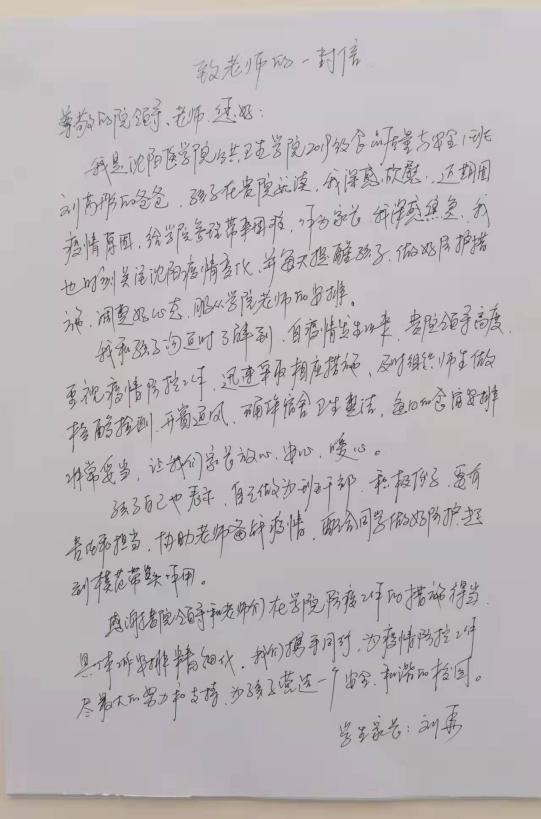 致老师的一封信
尊敬的院领导、老师、您好：
我是沈阳医学院公共卫生学院2019级食品质量与安全1班
刘芮彤的爸爸，孩子在贵院就读，我深感欣慰，近期因
疫情原因，给学院管理带来困难，作为家长我深感焦急，我
也时刻关注沈阳疫情变化，并每天提醒孩子，做好防护措
施，调整好心态，服从学院老师的安排。
我和孩子沟通时了解到，自疫情发生以来，贵院领导高度
重视疫情防控工作，迅速采取相应措施，及时组织师生做
核酸检测，开窗通风，确保宿舍卫生整洁，每日的食宿安排
非常妥当，让我们家长放心、安心、暖心。
孩子自己也表示，自己做为班干部，积极份子，要有
责任和担当，协助老师备战疫情，配合同学做好防护，起
到模范带头作用。
感谢贵院领导和老师们在学院防疫工作的措施得当，
具体的安排精细化，我们携手同行，为疫情防控工作
尽最大的努力和支持，为孩子营造一个安全、和谐的校园。
学生家长：刘勇